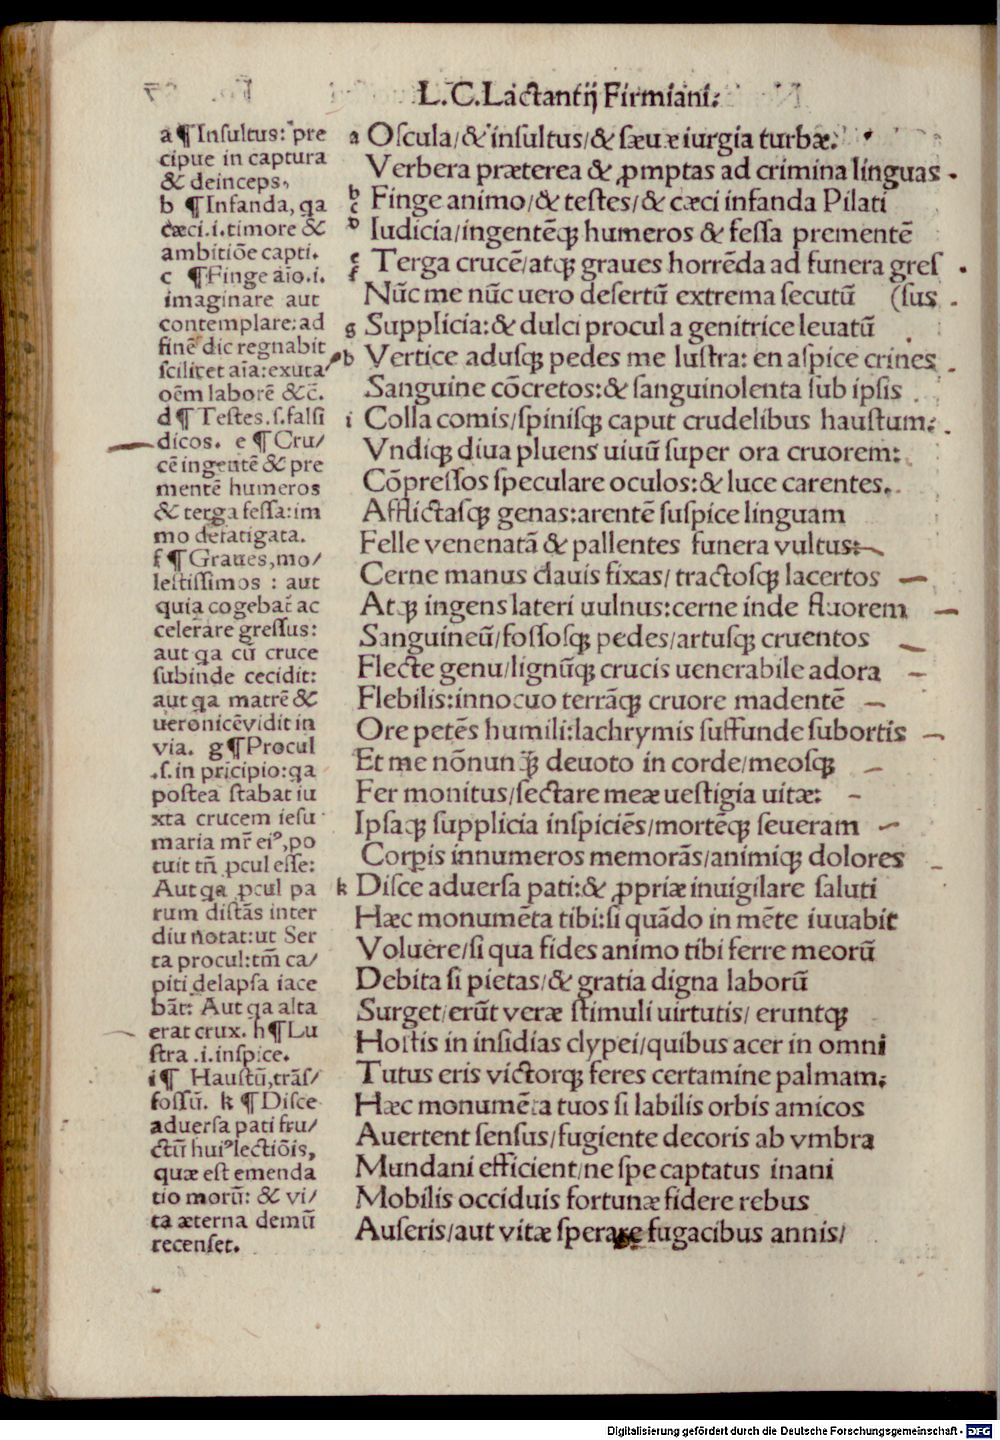 L.C.Lactantij Firmiani.
a ¶ Inſultus: pre
cipue in captura
& deinceps,
b ¶ Infanda, qa
cæci .i. timore &
ambitiõe capti.
c ¶ Finge aīo .i.
imaginare aut
contemplare: ad
finẽ dic regnabit
ſcilicet aīa: exuta
oẽm laborẽ &c̃.
d ¶ Teſtes .ſ. falſi
dicos. e ¶ Cru/
cẽ ingentẽ & pre
mentẽ humeros
& terga feſſa: im
mo defatigata.
f ¶ Graues, mo/
leſtiſſimos : aut
quia cogebat̃ ac
celerare greſſus:
aut qa cũ cruce
ſubinde cecidit:
aut qa matrẽ &
ueronicẽ vidit in
via. g ¶ Procul
.ſ. in pricipio: qa
poſtea ſtabat iu
xta crucem ieſu
maria mr̃ eiꝰ, po
tuit tñ ꝓcul eſſe:
Aut qa ꝓcul pa
rum diſtãs inter
diu notat: ut Ser
ta procul: tm̃ ca/
piti delapſa iace
bãt: Aut qa alta
erat crux. h ¶ Lu
ſtra .i. inſpice.
i ¶ Hauſtũ, trãſ/
foſſũ. k ¶ Diſce
aduerſa pati fru/
ctũ huiꝰ lectiõis,
quæ eſt emenda
tio morũ: & vi/
ta æterna demũ
recenſet.
a Oſcula/& inſultus/& ſæuæ iurgia turbæ:
Verbera præterea & ꝓmptas ad crimina linguas
b c Finge animo/& teſtes/& cæci infanda Pilati
d Iudicia/ingentẽqꝫ humeros & feſſa prementẽ
e f Terga crucẽ/atqꝫ graues horrẽda ad funera greſ
Nũc me nũc uero deſertũ extrema ſecutũ (ſus
g Supplicia: & dulci procul a genitrice leuatũ
h Vertice aduſqꝫ pedes me luſtra: en aſpice crines
Sanguine cõcretos: & ſanguinolenta ſub ipſis
i Colla comis/ſpiniſqꝫ caput crudelibus hauſtum:
Vndiqꝫ diua pluens uiuũ ſuper ora cruorem:
Cõpreſſos ſpeculare oculos: & luce carentes.
Afflictaſqꝫ genas: arentẽ ſuſpice linguam
Felle venenatã & pallentes funera vultus:
Cerne manus clauis fixas/ tractoſqꝫ lacertos
Atqꝫ ingens lateri uulnus: cerne inde fluorem
Sanguineũ/foſſoſqꝫ pedes/artuſqꝫ cruentos
Flecte genu/lignũqꝫ crucis uenerabile adora
Flebilis: innocuo terrãqꝫ cruore madentẽ
Ore petẽs humili: lachrymis ſuffunde ſubortis
Et me nõnunqꝫ deuoto in corde/meoſqꝫ
Fer monitus/ſectare meæ ueſtigia uitæ:
Ipſaqꝫ ſupplicia inſpiciẽs/mortẽqꝫ ſeueram
Corꝑis innumeros memorãs/animiqꝫ dolores
k Diſce aduerſa pati: & ꝓpriæ inuigilare ſaluti
Hæc monumẽta tibi: ſi quãdo in mẽte iuuabit
Voluere/ſi qua fides animo tibi ferre meorũ
Debita ſi pietas/& gratia digna laborũ
Surget/erũt veræ ſtimuli uirtutis/ eruntqꝫ
Hoſtis in inſidias clypei/quibus acer in omni
Tutus eris victorqꝫ feres certamine palmam:
Hæc monumẽta tuos ſi labilis orbis amicos
Auertent ſenſus/fugiente decoris ab vmbra
Mundani efficient/ne ſpe captatus inani
Mobilis occiduis fortunæ fidere rebus
Auſeris/aut vitæ ſperare fugacibus annis/
Digitalisierung gefördert durch die Deutsche Forschungsgemeinschaft - DFG